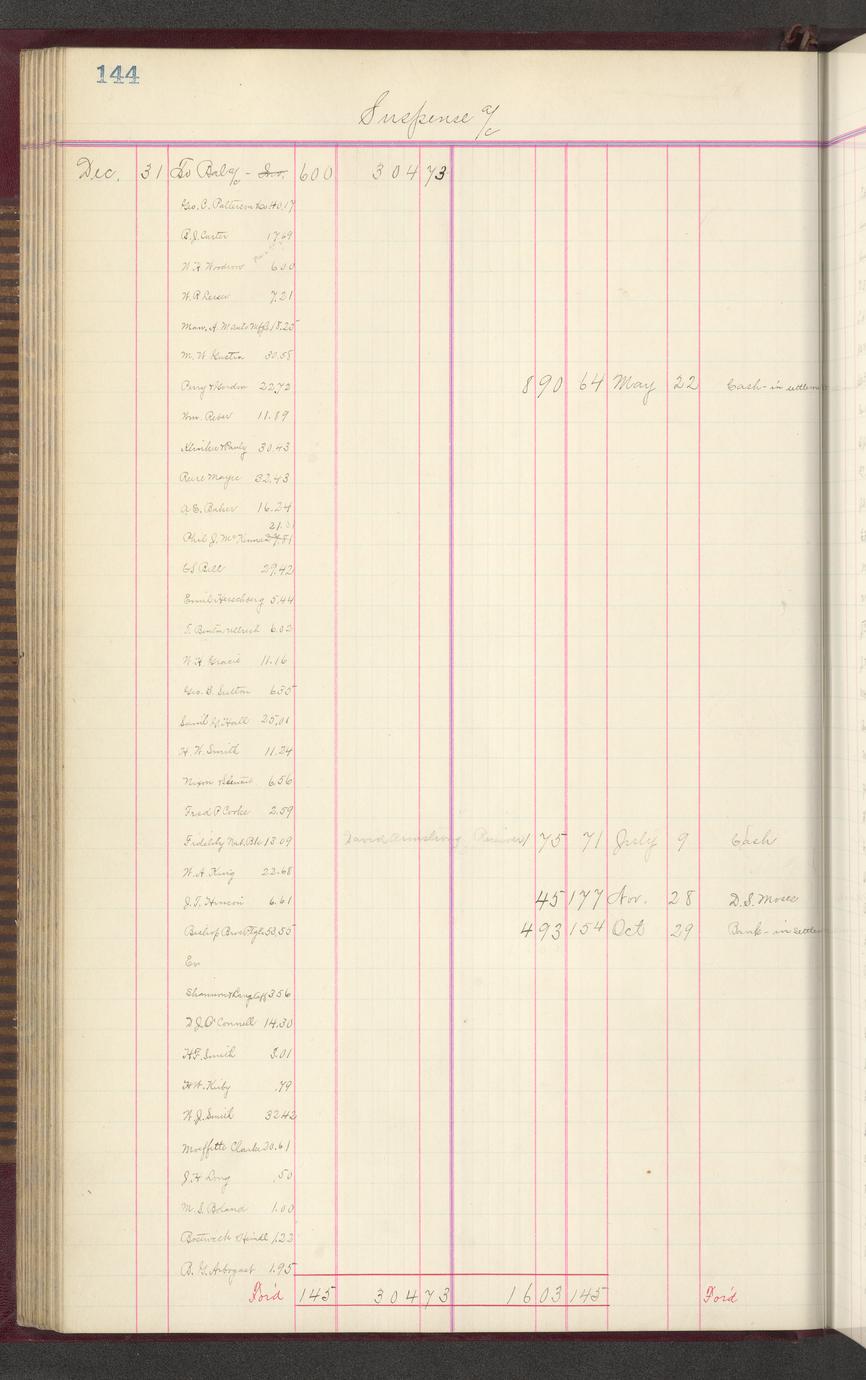 144
Suspense a/c
Dec. 31 To Bal a/c - 600 304 73
Geo. C. Patterson 40.17
B. J. Carter 17.69
W. H. Woodrow 6.00
W. P. 7.21
18.25
M. W. 30.58
Perry & Gordon 22.72 8 90 64 May 22 Cash - in settlem
Wm. Reber 11.89
30.43
32.43
A. E. Baker 16.24
21.
Phil J. McKinney
C S Bell 29.42
Emil Herschberg 5.44
6.02
W. H. Gracie 11.16
Geo. B. Sutton 6.35
Saml G. Hall 25.01
H. W. Smith 11.24
Nixon & 6.56
Fred P Cooke 2.59
Fidelity Nat. Bk. 13.09 David Armstrong, Receiver 1 75 71 July 9 Cash
W. A. King 22.68
J. T. Hinson 6.61 45 177 Nov. 28 D. S. Moses
Bishop Bros 53.55 4 93 154 Oct 29 Bank - in settlem
Ev
Shannon & 3.56
D J O'Connell 14.30
H F. Smith 3.01
H W. Kirby .79
W. J. Smith 32.42
Moffette Clarke 20.61
J. H Long .50
M. S. Boland 1.00
Bostwick & 1.23
B. G. Arbogast 1.95
For'd 145 304 73 16 03 145 For'd